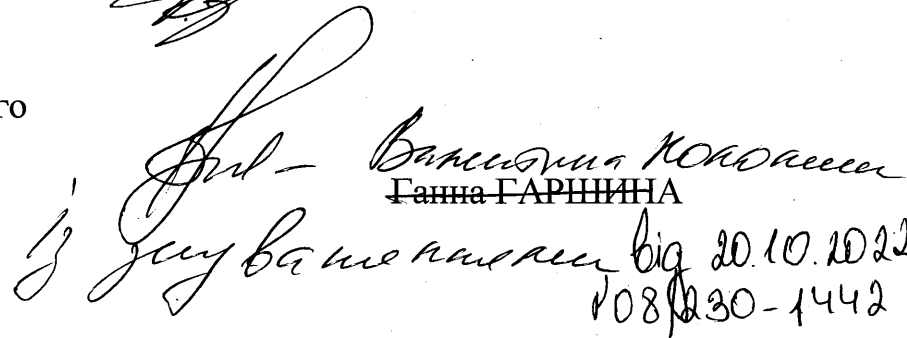 го
Валентина
Ганна ГАРШИНА
із зауваженнями від 20.10.2022
№08/230-1442